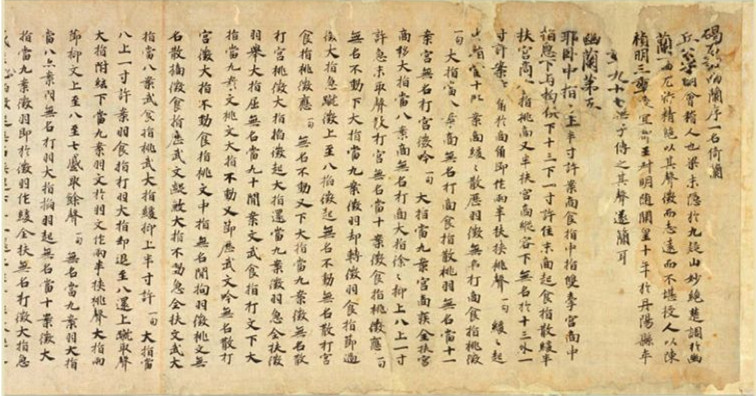 碣石調幽蘭序一名倚蘭
丘公字明會稽人也梁末隱於九疑山妙絕楚調於幽
蘭一曲尤特精絕以其聲微而志遠而不堪授人以陳
禎明三年授宜都王叔明隨開皇十年於丹陽縣卒
年九十七無子傳之其聲遂簡耳
幽蘭第五
耶臥中指十上半寸許案商食指中指雙牽宮商中
指急下与拘俱下十三下一寸許住末商起食指散緩半
扶宮商食指挑商又半扶宮商縱容下無名於十三外一
寸許案商角於商角即作兩半扶挾挑聲一句緩緩起
無名當十一案商緩緩散歷羽徵無名打商食指挑徵
一句大指當八案商無名打商食指散挑羽無名當十一
案宮無名打宮徵吟一句大指當九案宮商疾全扶宮
商移大指當八案商無名打商大指徐徐抑上八上一寸
許急末取聲散打宮無名當十案徵食指挑徵應一句
無名不動下大指當九案徵羽却轉徵羽食指節過
徵大指急蹴徵上至八掐徵起無名不動無名散打宮
食指挑徵應一句無名不動又下大指當九案徵無名散
打宮挑徵大指掐徵起大指還當九案徵羽急全扶徵
羽舉大指屈無名當九十間案文武食指打文下大
指當九案文挑文大指不動又節歷武文吟無名散打
宮徵大指不動食指挑文中指無名間拘羽徵挑文無
名散摘徵食指歷武文縱起大指不動急全扶文武大
指當八案武食指挑武大指緩抑上半寸許一句大指當
八上一寸許案羽食指打羽大指却退至八還上蹴取聲
大指附絃下當九案羽文於羽文作兩半扶挾挑聲大指兩
節抑文上至八至七盛取餘聲一句無名當九案羽大指
當八案羽無名打羽大指掐羽起無名當十案徵大
指當九案徵羽即於徵羽作緩全扶無名打徵大指急